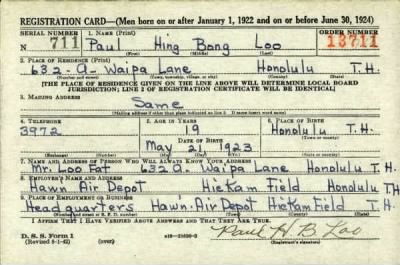 REGISTRATION CARD—(Men born on or after January 1, 1922 and on or before June 30, 1924)
SERIAL NUMBER 1. NAME (Print) ORDER NUMBER
N 711 Paul Hing Bong Loo 13711
(First) (Middle) (Last)
2. PLACE OF RESIDENCE (Print)
632-A-Waipa Lane Honolulu T.H.
(Number and street) (Town, township, village, or city) (County) (State)
[THE PLACE OF RESIDENCE GIVEN ON THE LINE ABOVE WILL DETERMINE LOCAL BOARD
JURISDICTION; LINE 2 OF REGISTRATION CERTIFICATE WILL BE IDENTICAL]
3. MAILING ADDRESS
Same
(Mailing address if other than place indicated on line 2. If same insert word same)
4. TELEPHONE 5. AGE IN YEARS 6. PLACE OF BIRTH
3972 19 Honolulu
DATE OF BIRTH (Town or county)
May 21 1923 T.H.
(Mo.) (Day) (Yr.) (State or country)
7. NAME AND ADDRESS OF PERSON WHO WILL ALWAYS KNOW YOUR ADDRESS
Mr. Loo Fat 632 A- Waipa Lane Honolulu T.H.
8. EMPLOYER'S NAME AND ADDRESS
Hawn Air Depot Hickam Field Honolulu T.H.
9. PLACE OF EMPLOYMENT OR BUSINESS
Headquarters Hawn. Air Depot Hickam Field T.H.
(Number and street or R. F. D. number) (Town) (County) (State)
I AFFIRM THAT I HAVE VERIFIED ABOVE ANSWERS AND THAT THEY ARE TRUE.
D. S. S. Form 1
(Revised 6-1-42) Paul H B Loo
(Registrant's signature)